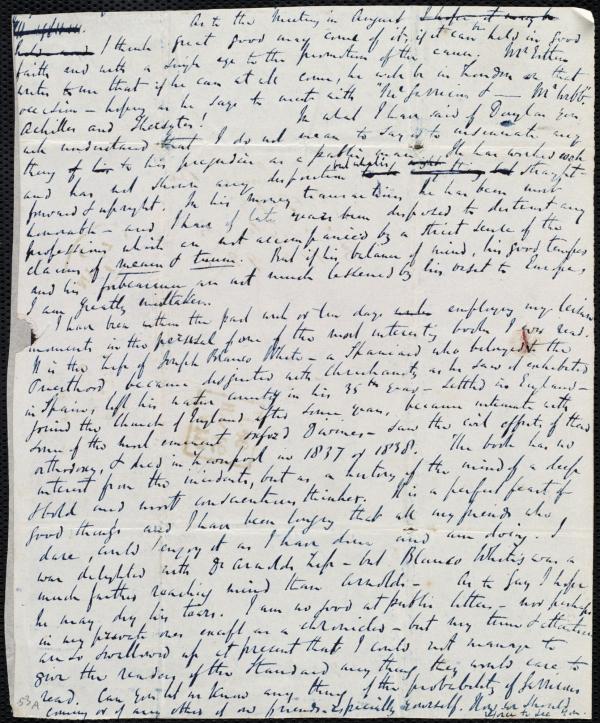 As to the Meeting in August I hope it may be
I think great good may come of it, if it can be held in good
faith and with a single eye to the promotion of the cause. Mr Estlin
writes to me that if he can at all come, he will be in London on that
occasion – hoping as he says to meet with "Mr Garrison & — Mr Webb".
Achilles and Thersites! In what I have said of Douglass you
will understand that I do not mean to say or to insinuate any
thing of his to his prejudice as a public man. He has worked well
and has not shewn any disposition straight
forward & upright. In his money transactions he has been most
honorable – and I have of late years been disposed to distrust any
professions which are not accompanied by a strict sense of the
claims of meum & tuum. But if his balance of mind, his good temper
and his forbearance are not much lessened by his visit to Europe,
I am greatly mistaken.
I have been within the past week or ten days employing my leisure
moments in the perusal of one of the most interesting books I ever read.
It is the Life of Joseph Blanco White – a Spaniard who belonged to the
Priesthood, became disgusted with Christianity as he saw it exhibited
in Spain, left his native country in his 35th year – settled in England –
joined the Church of England after some years, became intimate with
some of the most eminent Oxford Divines – saw the evil effects of their
orthodoxy, & died in Liverpool in 1837 or 1838. The book has no
interest from the incidents, but as a history of the mind of a deep
& bold and most conscientious thinker. It is a perfect feast of
good things and I have been longing that all my friends who
dare, could enjoy it as I have done and am doing. I
was delighted with Dr Arnolds Life – but Blanco White's was a
much farther reaching mind than Arnolds – As to Guy I hope
he may dry his tears. I am no good at public letters – nor perhaps
in my private ones except as a chronicler – but my time & attention
are so swallowed up at present that I could not manage to
give the readers of the Standard any thing they would care to
read. Can you let us know any thing of the probability of Garrisons
coming or of any other of our friends – especially yourself. How we should
rejoice to see you.
53A